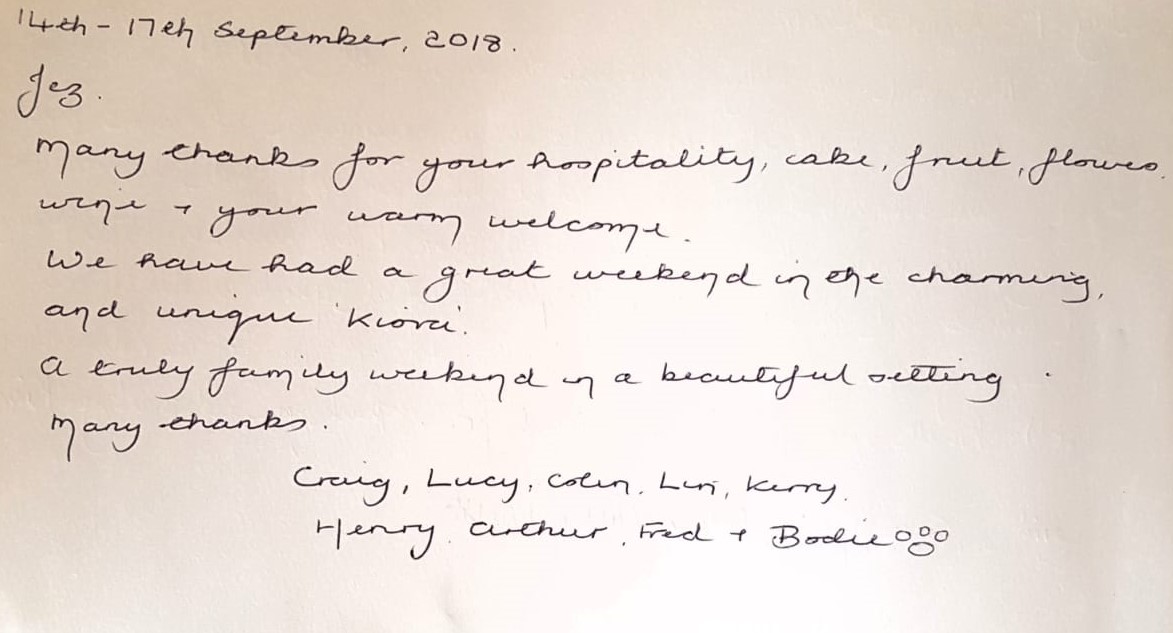 14th - 17th September, 2018.
Jez.
Many thanks for your hospitality, cake, fruit, flowers,
wine + your warm welcome.
We have had a great weekend in the charming,
and unique 'Kiora'.
A truly family weekend in a beautiful setting.
Many thanks.
Craig, Lucy, Colin, Lin, Kerry.
Henry, Arthur, Fred + Bodie